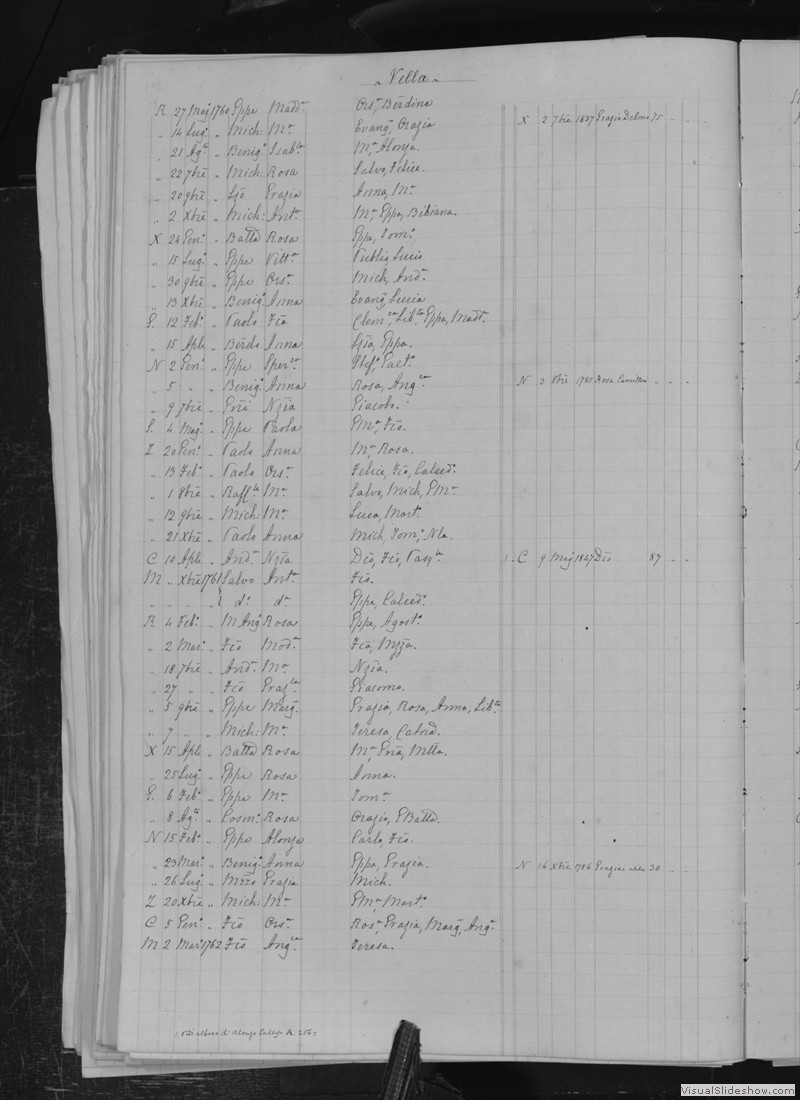 Vella
R 27 Mag. 1760 Gppe Madd.a Ors.a, Berdina X 2 7bre 1837 Grazia Delmo 75
„ 14 Lug. „ Mich: M.a Evang., Orazia
„ 21 Ag.to „ Benig. Isab.la M.a, Alonza.
„ 22 7bre „ Mich: Rosa Salvo, Felice.
„ 20 9bre „ Gio Grazia Anna, M.a
„ 2 Xbre „ Mich: Ant.a M.a, Gppa, Bibiana.
X 24 Gen. „ Batta Rosa Gppa, Tom.o
„ 15 Lug. „ Gppe Vitt.a Publio, Lucio
„ 30 9bre „ Gppe Ors.a Mich, And.a
„ 13 Xbre „ Benig. Anna Evang., Lucia
G. 12 Feb. „ Paolo Fca Clem.za, Lib.ta, Gppa, Madd.a
„ 15 Aple „ Berdo Anna Gia, Gppa.
N 2 Gen. „ Gppe Sper.za Stef., Gaet.o
„ 5 „ „ Benig. Anna Rosa, Ang.ca N 3 8bre 1785 Rosa Camilleri
„ 9 7bre „ Nzia Giacobo.
G. 4 Mag. „ Gppe Paola GM.a, Fco.
Z 20 Gen. „ Paolo Anna M.a, Rosa.
„ 13 Feb. „ Paolo Ors.a Felice, Fco, Calced.
„ 1 8bre „ Raff.la M.a Salvo, Mich, GM.a
„ 12 9bre „ Mich: M.a Luca, Mart.o
„ 21 Xbre „ Paolo Anna Mich, Tom., Nla.
C 10 Aple „ And.a Nzia Dco, Fco, Pasq.le 1. C 9 Mag. 1847 Dco 87
M „ Xbre 1761 Salvo Ant.a Fco.
„ „ „ „ d.o d.a Gppe, Calced.
R 4 Feb. „ M Ang. Rosa Gppe, Agost.o
„ 2 Mar. „ Fco Mod.a Fca,
„ 18 7bre „ And.a M.a Nzia.
„ 27 „ „ Fco Graz.la Giacoma.
„ 5 9bre „ Gppe Marg. Grazia, Rosa, Anna, Lib.ta
„ 7 „ „ Mich: M.a Teresa, Catna.
X 15 Aple „ Batta Rosa M.a, Gna, Mtta.
„ 25 Lug. „ Gppe Rosa Anna.
G. 6 Feb. „ Gppe M.a Tom.a
„ 8 Ag.to „ Cosm. Rosa Orazio, GBatta.
N 15 Feb. „ Gppe Alonza Carlo, Fco.
„ 23 Mar. „ Benig. Anna Gppa, Grazia. N 16 Xbre 1786 Grazia 30
„ 26 Lug. „ Grazia Mich.
Z 20 Xbre „ Mich: M.a GM.a, Mart.o
C 5 Gen. „ Fco Ors.a Ros.a, Grazia, Marg., Ang.a
M 2 Mar. 1762 Fco Ang.ca Teresa.
1. Vedi albero di Alonzo A. 256
VisualSlideshow.com